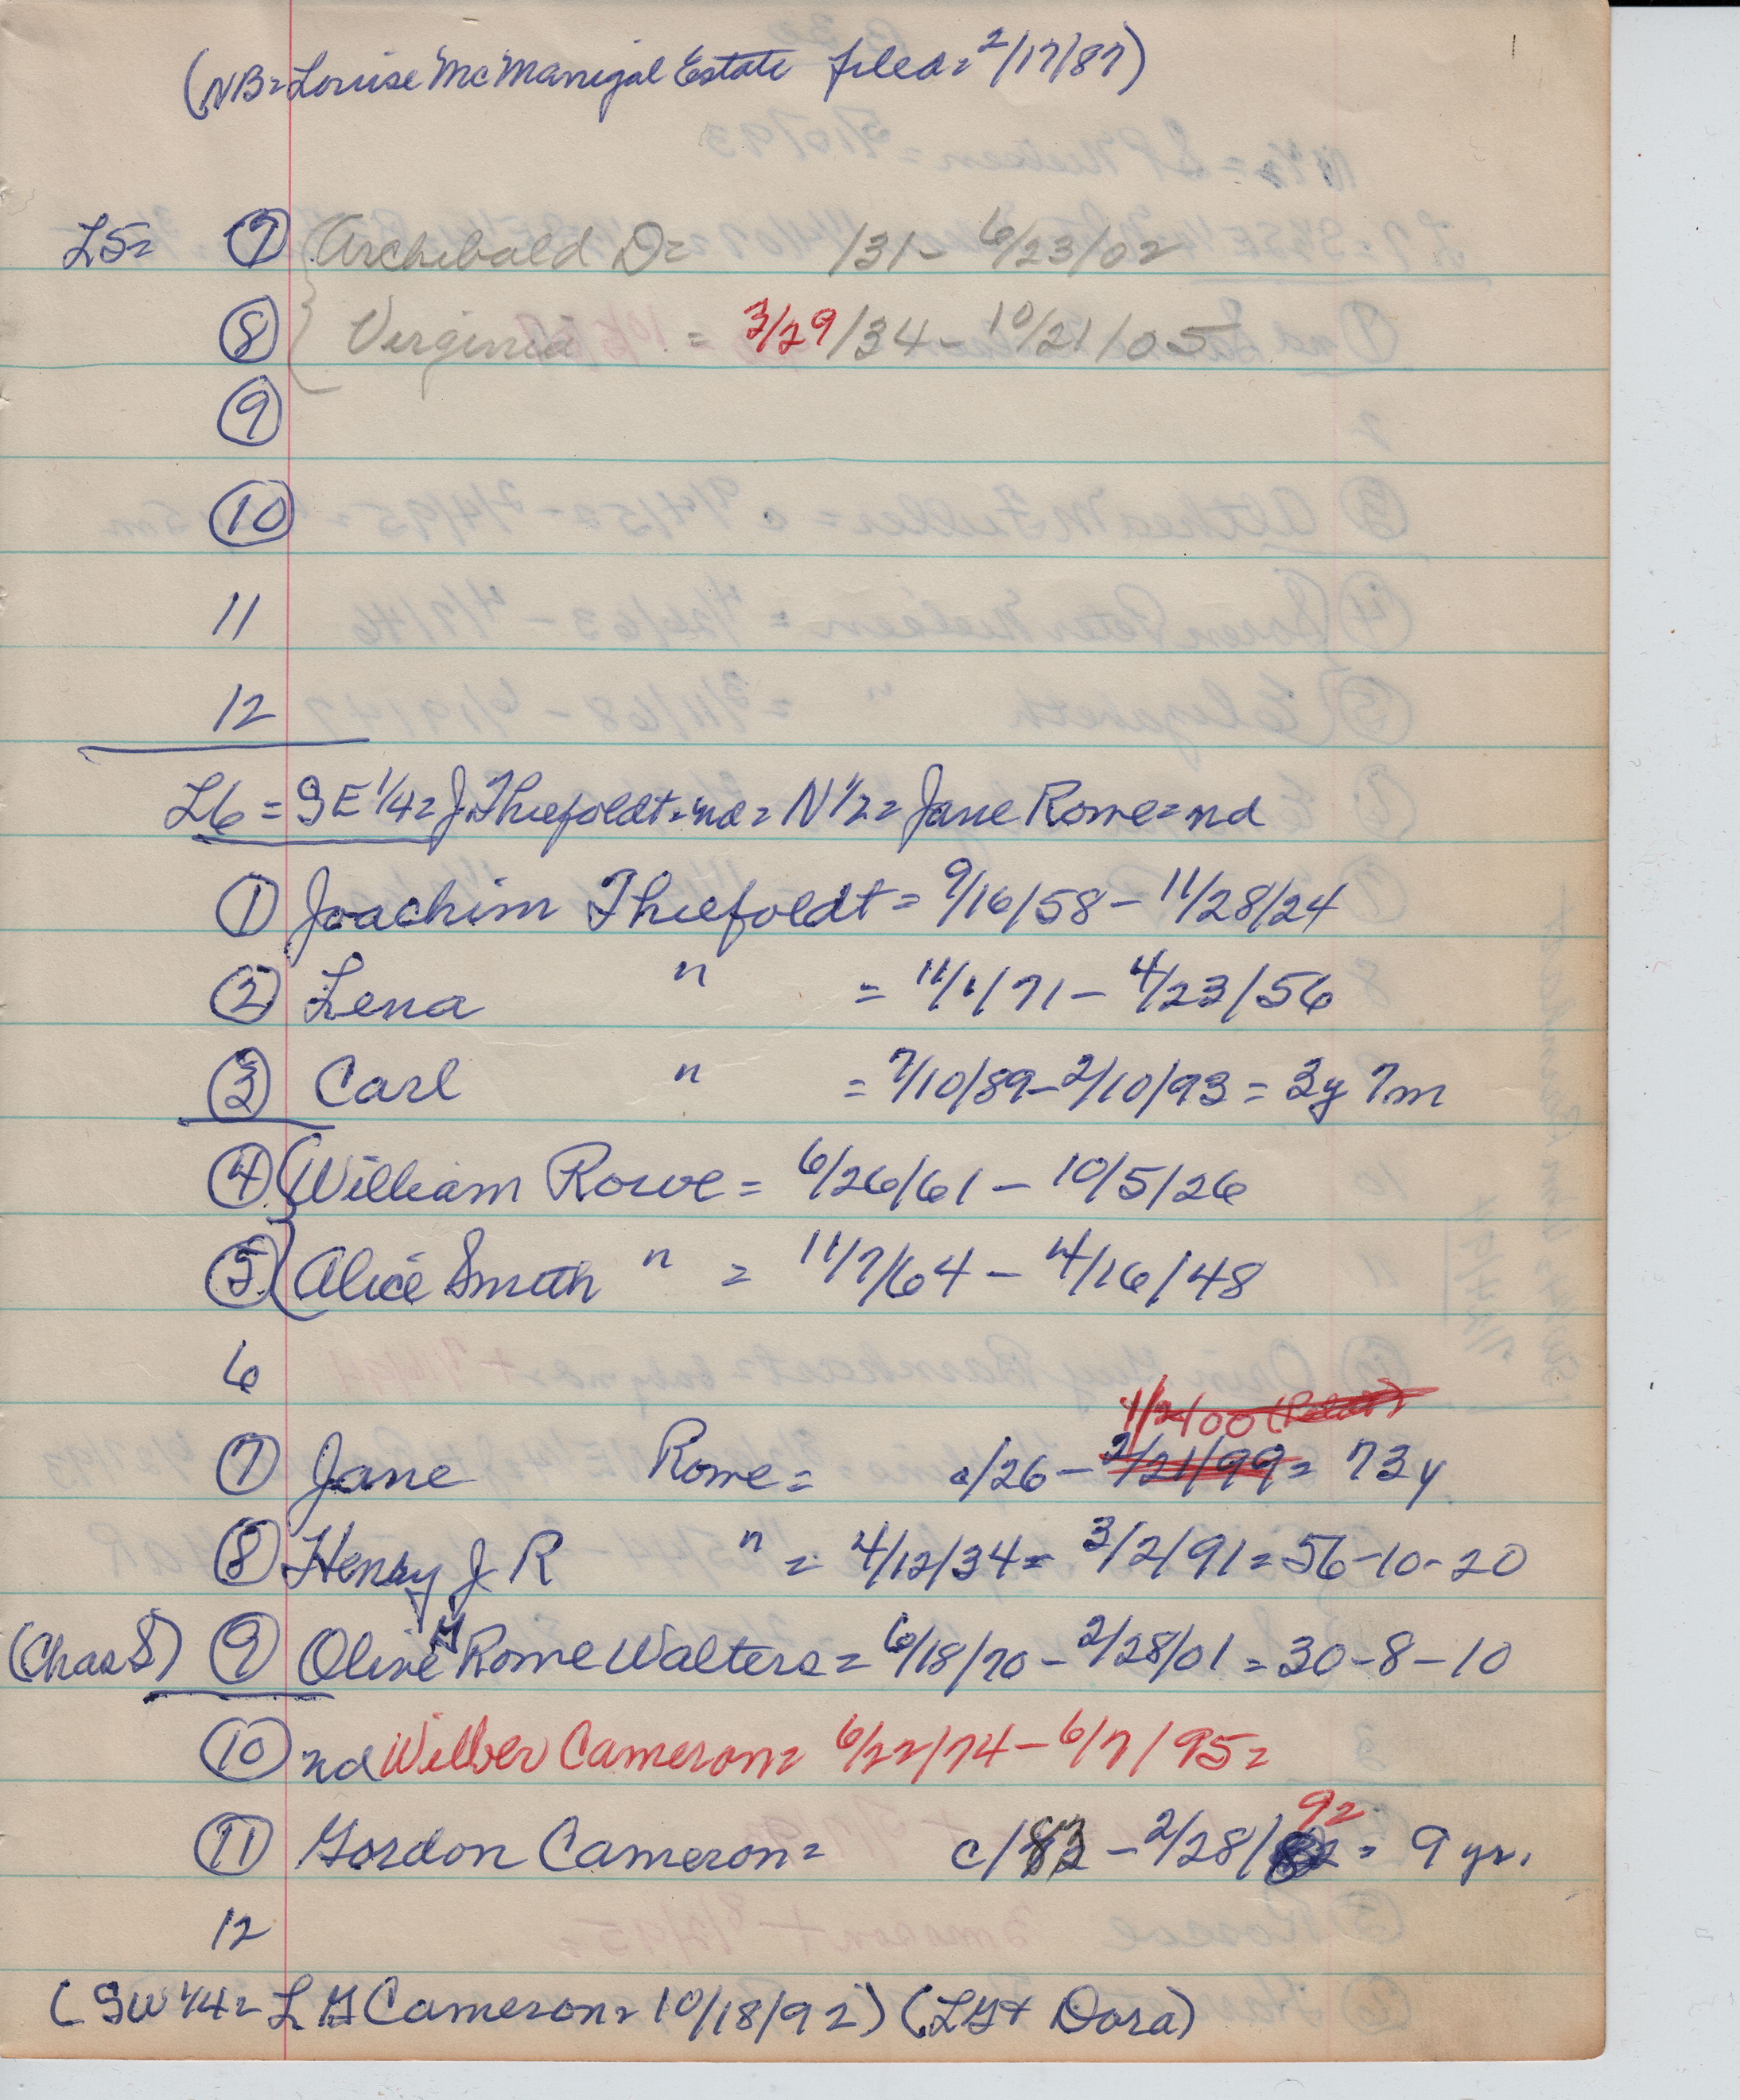 (NB=Louise McManigal Estate filed=2/17/87)
L5= 7 Archibald D= /31- 6/23/02
8 Virginia = 3/29/34-10/21/05
9
10
11
12
L6=SE1/4=J.Thiefoldt=nd=N1/2=Jane Rowe=nd
1 Joachim Thiefoldt=9/16/58-11/28/24
2 Lena " = 11/1/71-4/23/56
3 Carl " = 7/10/89-2/10/93=3y 7m
4 William Rowe= 6/26/61-10/5/26
5 Alice Smith " = 11/7/64-4/16/48
6
7 Jane Rowe= c/26-2/21/99= 73y
8 Henry J R " = 4/12/34= 3/2/91=56-10-20
(Chas S) 9 Olive G Rowe Walters=6/18/70-2/28/01=30-8-10
10 nd Wilber Cameron= 6/22/74-6/7/95=
92
11 Gordon Cameron= c/83-2/28/82= 9 yr.
12
(SW1/4=L G Cameron=10/18/92) (LG+ Dora)